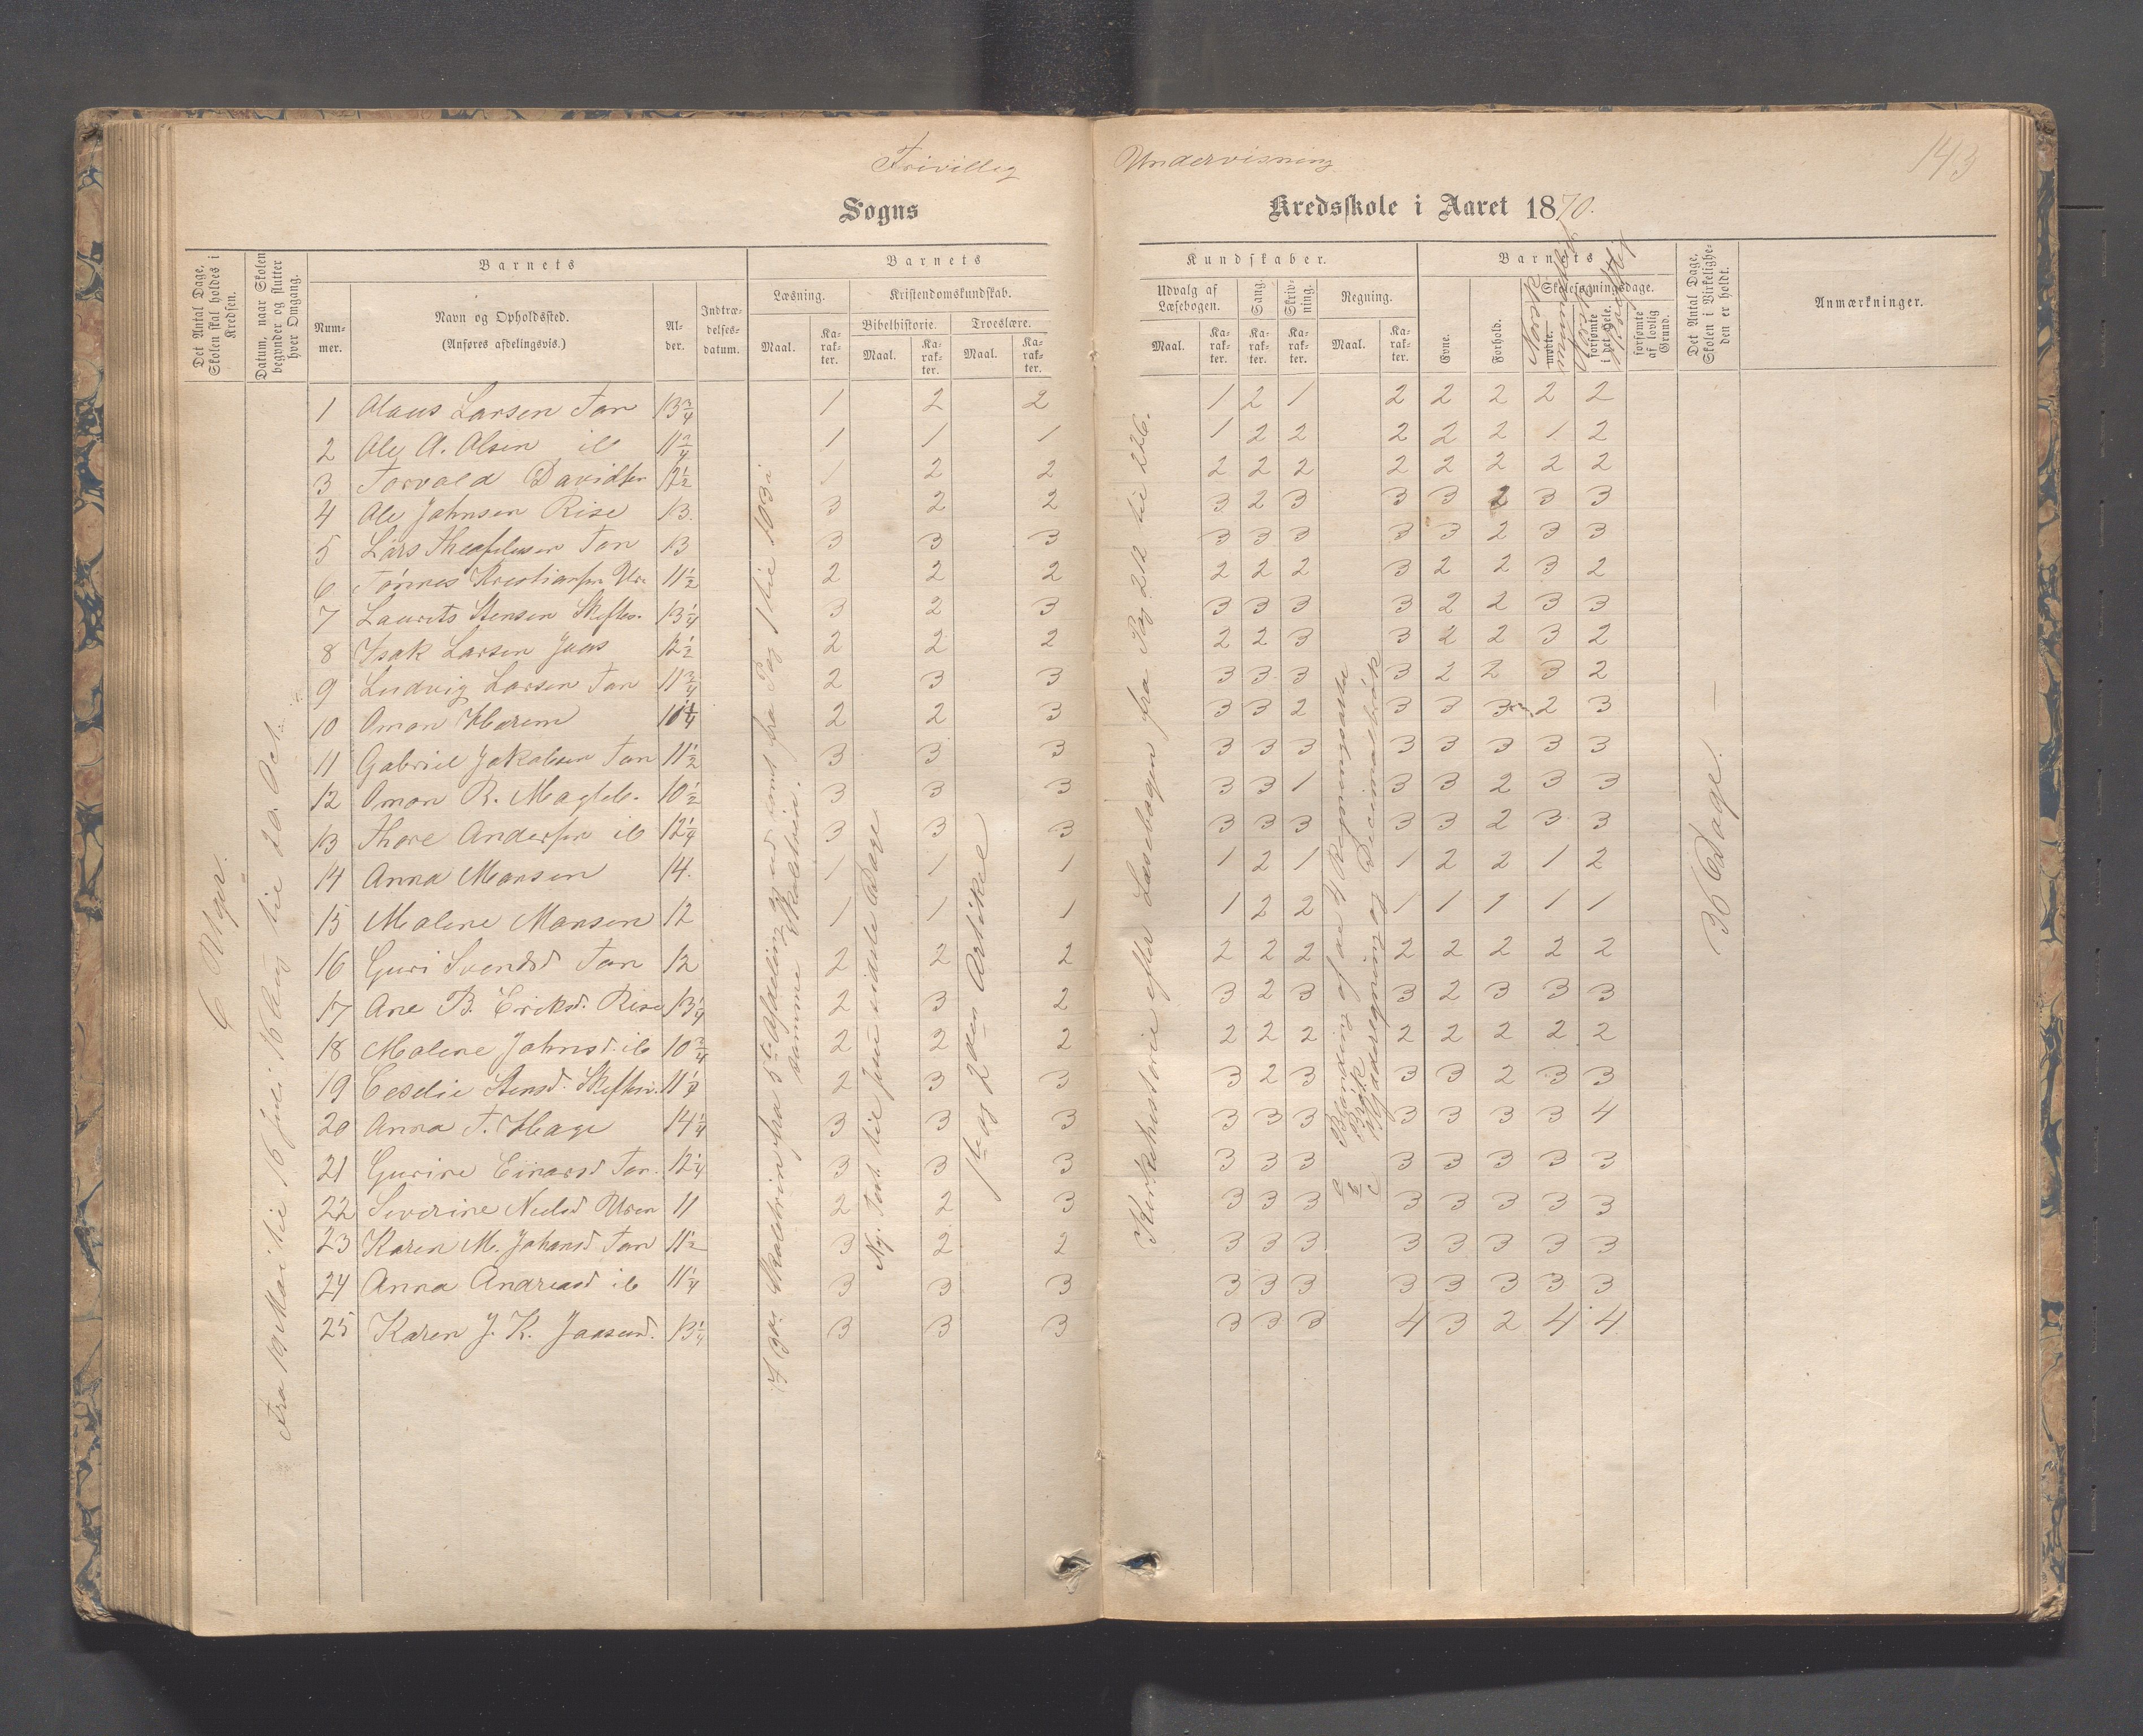 Frivillig Undervisning
143
Sogns Kredsskole i Aaret 1870.
Det Antal Dage, Skolen skal holdes i Kredsen.
Datum, naar Skolen begynder og slutter hver Omgang.
Barnets
Num-mer.
Navn og Opholdssted. (Anføres afdelingsvis.)
Al-der.
Indtræ-delses-datum.
Barnets
Læsning.
Maal.
Ka-rak-ter.
Kristendomskundskab.
Bibelhistorie.
Maal.
Ka-rak-ter.
Troeslære.
Maal.
Ka-rak-ter.
Kundskaber.
Udvalg af Læsebogen.
Maal.
Ka-rak-ter.
Sang.
Ka-rak-ter.
Skriv-ning.
Ka-rak-ter.
Regning.
Maal.
Ka-rak-ter.
Barnets
Evne.
Forhold.
Skolesøgningsdage.
mødte.
forsømte i det Hele.
forsømte af lovlig Grund.
Norsk mundtlig
Norsk skriftlig
Det Antal Dage, Skolen i Virkelighe-den er holdt.
Anmærkninger.
1 Olaus Larsen Tan 13 3/4 1 2 2 1 2 1 2 2 2 2 2
2 Ole A. Olsen ib 11 3/4 1 1 1 1 2 2 2 2 2 1 2
3 Torvald Davidsen 12 1/2 1 2 2 2 2 2 2 2 2 2 2
4 Ole Johnsen Rise 13. 3 2 2 3 2 3 3 3 2 3 3
5 Lars Theofilusen Tan 13 3 3 3 3 3 3 3 3 2 3 3
6 Tönnes Kristiansen 11 1/2 2 2 2 2 2 2 3 2 2 3 2
7 Laurits Stensen 13 1/4 3 2 3 3 3 3 3 2 2 3 3
8 Isak Larsen Jaas 12 1/2 2 2 2 2 2 3 3 2 2 3 2
9 Ludvig Larsen Tan 11 3/4 2 3 3 3 3 3 3 2 2 3 2
10 Omon 10 1/4 2 2 3 3 3 2 3 3 3 2 3
11 Gabriel Jakobsen Tan 11 1/2 3 3 3 3 3 3 3 3 3 3 3
12 Omon R. 10 1/2 3 3 3 3 3 1 3 3 2 3 3
13 Thore Andersen ib 12 1/4 3 3 3 3 3 3 3 3 2 3 3
14 Anna Monsen 14. 1 1 1 1 2 1 1 2 2 1 2
15 Malene Monsen 12 1 1 1 1 2 2 1 1 1 1 1
16 Guri Svendsd Tan 12 2 2 2 2 2 2 2 2 2 2 2
17 Ane B. Eriksd. Rise 13 1/4 2 3 2 3 2 3 3 2 3 3 3
18 Malene Johnsd. ib 10 3/4 2 2 2 2 2 2 2 2 2 2 2
19 Ceselie Stensd. 11 1/4 2 3 3 3 2 3 3 3 2 3 3
20 Anna T. Hage 14 1/4 3 3 3 3 3 3 3 3 3 3 4
21 Gurine Einarsd Tan. 12 1/4 3 3 3 3 3 3 3 3 3 3 3
22 Severine Nielsd Uren 11 2 2 3 3 3 3 3 3 3 3 3
23 Karen M. Johansd Tan 11 1/2 3 2 2 3 3 3 3 3 3 3 3
24 Anna Andreasd ib 11 1/4 3 3 3 3 3 3 3 3 3 3 3
25 Karen J. K. Jaasund. 13 1/4 3 3 3 3 3 3 4 3 2 4 4
6 Uger.
Fra 19 Mai til 16 Juli 16 Aug til 20. Oct.
fra 5te Afdeling og ud samt fra Pag 1 til 103 i samme
1ste og 2den Artikel
Kirkehistorie efter Læsebogen fra Pag 212 til 226.
Blanding af de 4 Regningsarter
Bröik og Decimalbröik
36 Dage. —